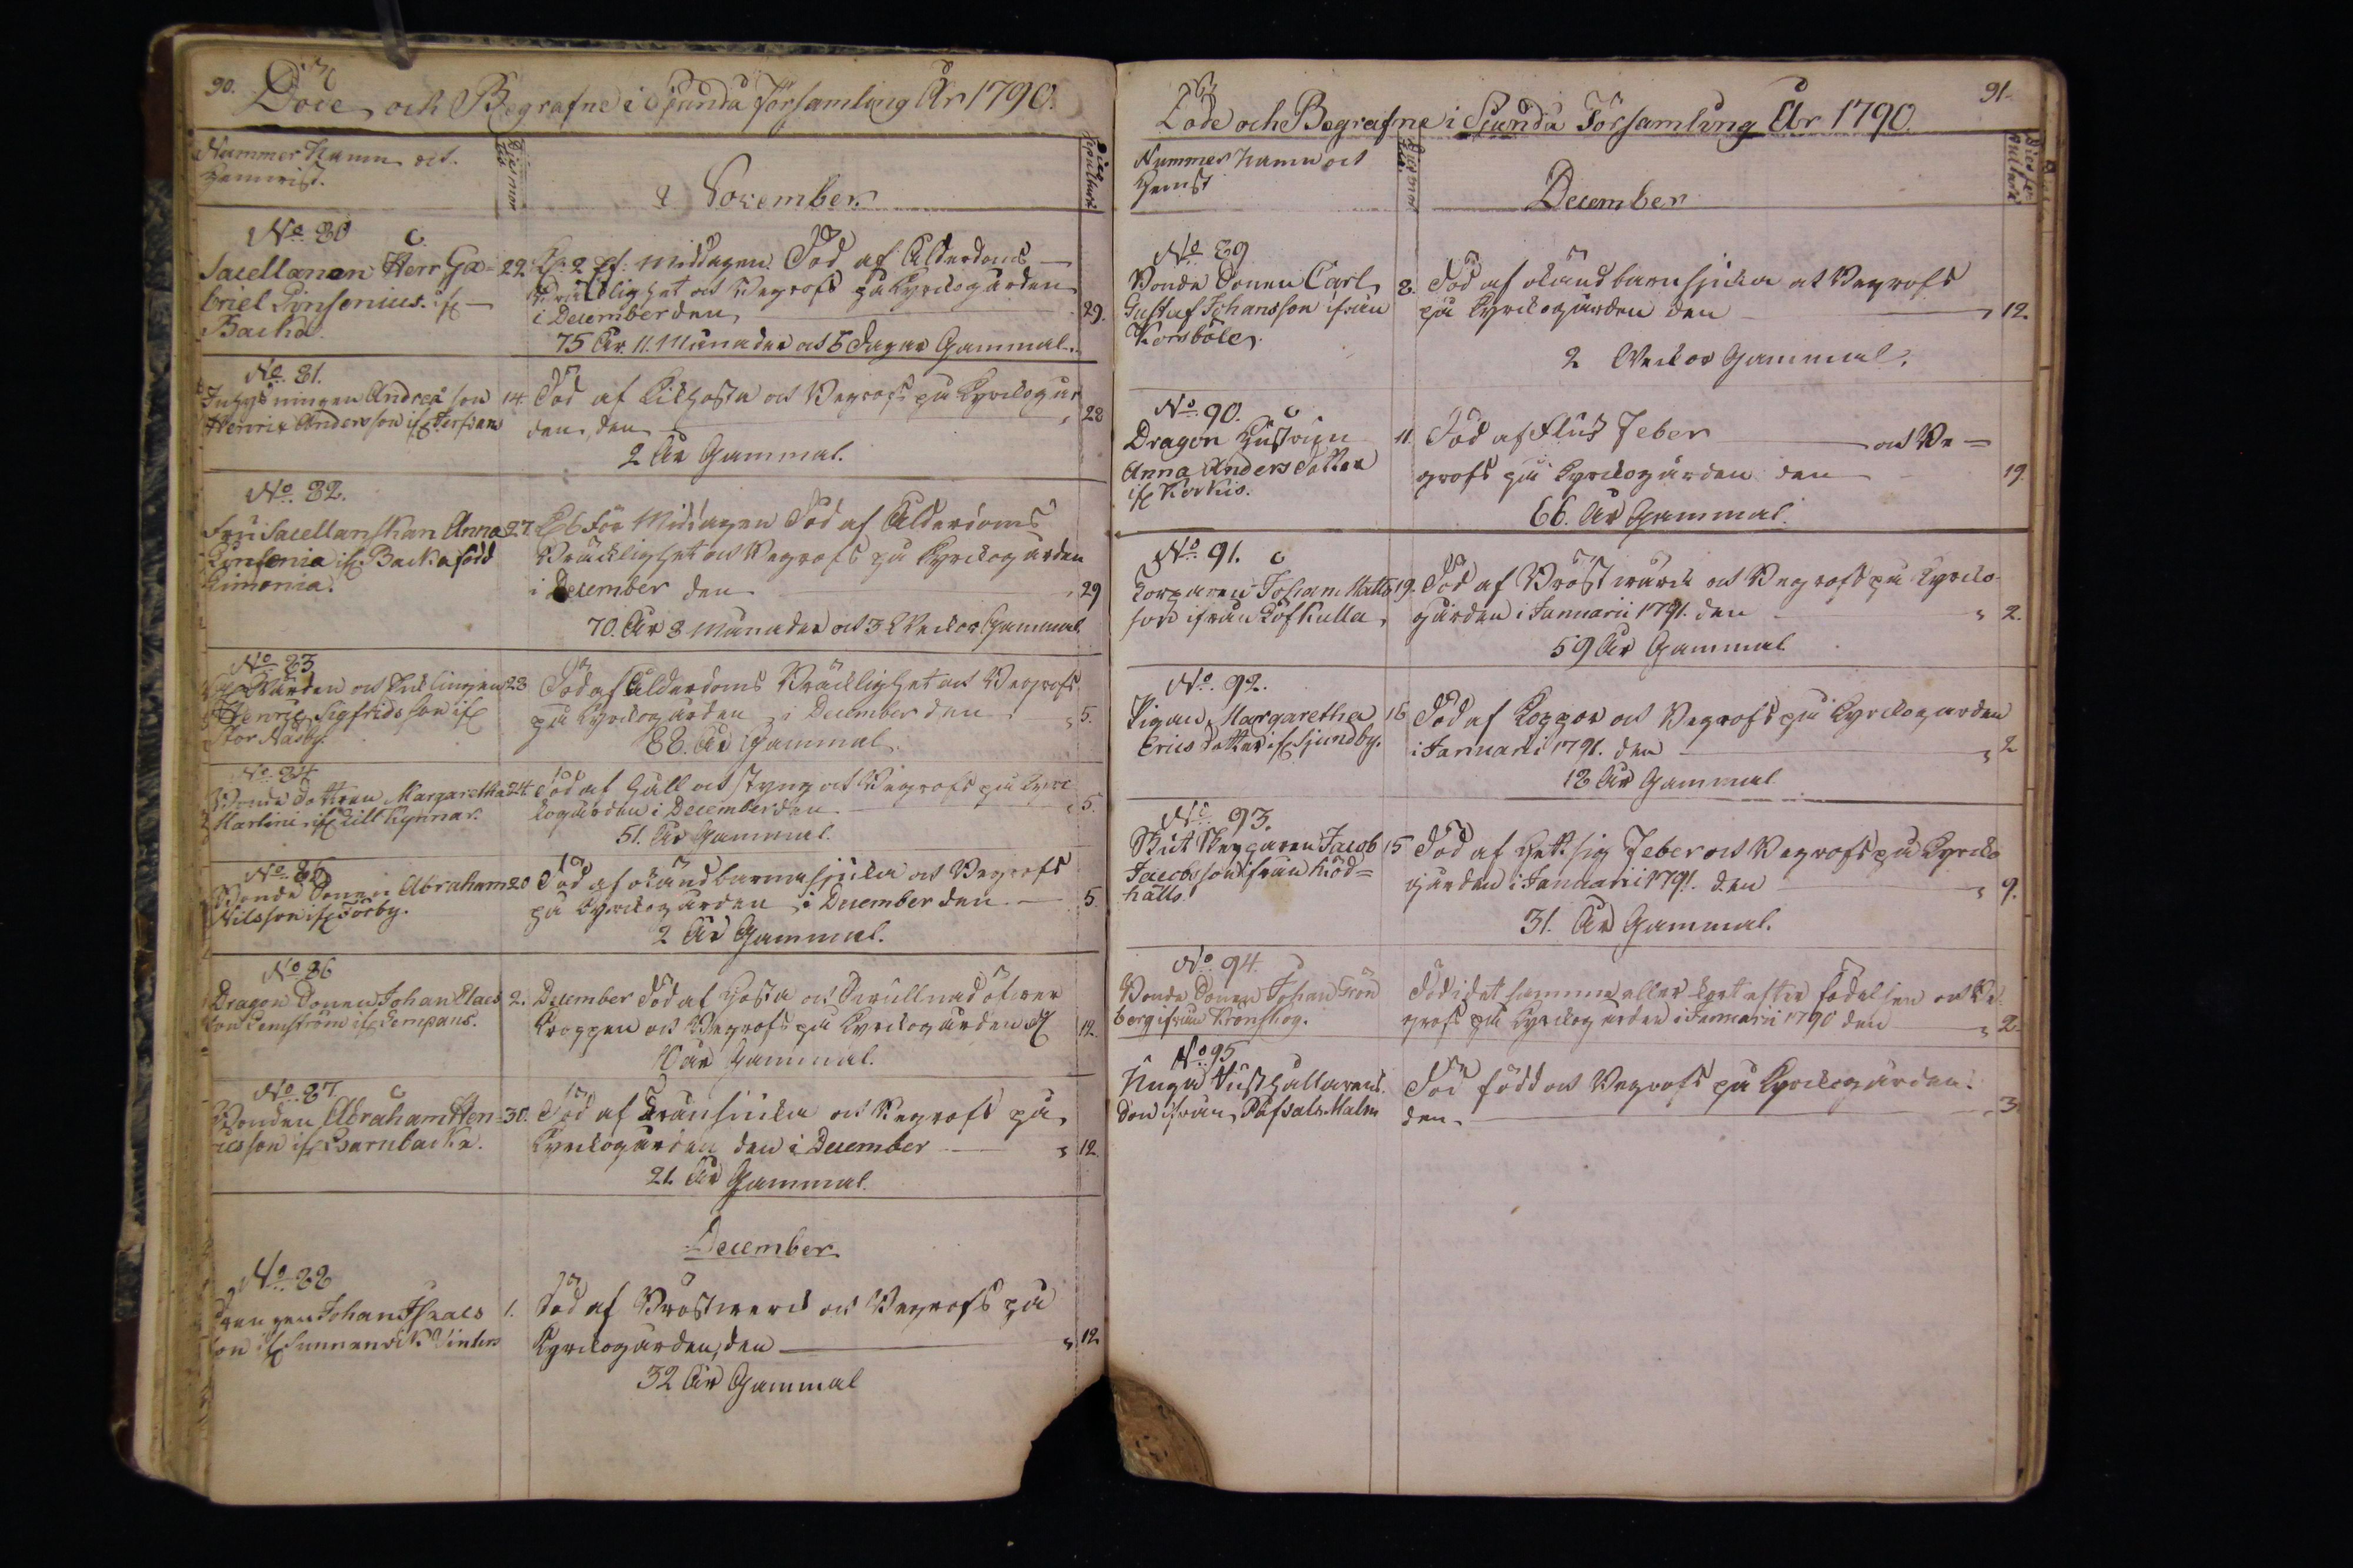 90.
Döde och Begrafne i Sjundå Församling År 1790.
Nummer Namn och
Hemvist.
November.
No. 80
Sacellanen Herr Ga-
briel Lynsenius. if.
Backa.
22. Kl: 2 Ef: Middagen Död af Ålderdoms
Bräcklighet och Begrofs på Kyrckogården
i December den 29.
75 År. 11. Månader och 5 Dagar Gammal.
No. 81.
Inhysningen Andreæ son
Henric Andersson if.
14. Död af Kikhosta och Begrofs på Kyrckogår
den, den 28
2 År Gammal.
No. 82.
Fru Sacellanskan Anna
Lynsenia if. Backa född
Kimonia.
27. Kl 6 För Middagen Död af Ålderdoms
Bräcklighet och Begrofs på Kyrckogården
i December den 29
70. År 8 Månader och 3 Weckor Gammal
No. 83
och Enklingen
Henric Sigfridsson if
Stor Näsby.
23 Död af Ålderdoms Bräcklighet och Begrofs
på Kyrckogården i December den 5.
88. År Gammal.
No. 84
Bonde Dottren Margaretha
Martini if Lill Kynnar.
24. Död af Håll och styng och Begrofs på Kyrc
kogården i December den 5.
51. År Gammal.
No. 85
Bonde Sonen Abraham
Nilsson if Törby.
20 Död af okänd barnasjuka och Begrofs
på Kyrckogården i December den 5
2 År Gammal.
No 86
Dragon Sonen Johan Claes
son if Kompans.
2. December Död af Hosta och Svullnad öfwer
Kroppen och Begrofs på Kyrckogården d 12.
10 år Gammal.
No. 87.
Bonden Abraham Hen-
ricsson if Barnbacka.
30. Död af Bränsjuka och Begrofs på
Kyrckogården den i December 12.
21. År Gammal.
December
No. 88
Drengen Johan Isaacs
son if Sunnanvik Vinters
1. Död af Bröstwerck och Begrofs på
Kyrckogården, den 12
32 År Gammal
91.
Döde och Begrafne i Sjundå Församling År 1790.
Nummer Namn och
Hemvist
December
No. 89
Bonde Sonen Carl
Gustaf Johansson ifrån
Korsböle.
8. Död af okänd barnsjuka och Begrofs
på Kyrckogården den 12.
2 Weckor Gammal.
No. 90.
Dragon Hustrun
Anna Anders Dotter
if Korkis.
11. Död af Fluss Feber och Be-
grofs på Kyrckogården den 19.
66. År Gammal.
No 91.
Torparen Johan Matts
son ifrån Kofkulla.
19. Död af Bröstwärck och Begrofs på Kyrcko
gården i Januarii 1791. den 2.
59 År Gammal
No. 92.
Pigan, Margaretha
Erics dotter if Sjundby.
16 Död af Koppor och Begrofs på Kyrckogården
i Januari 1791. den 2
18 År Gammal
No. 93.
Jacob
Jacobsson ifrån Köd=
hälls.
15 Död af Hettsig Feber och Begrofs på Kyrcko
gården i Januari 1791. den 9.
31. År Gammal.
No. 94.
Bonde Sonen Johan Grön
berg ifrån Kronskog.
Död i det samma eller kort efter födelsen och Be
grofs på Kyrckogården i Januarii 1790 den 2.
No. 95
Unga Rusthållarens
Son ifrån, Pafsals Malm
Död född och Begrofs på Kyrckogården.
den 3